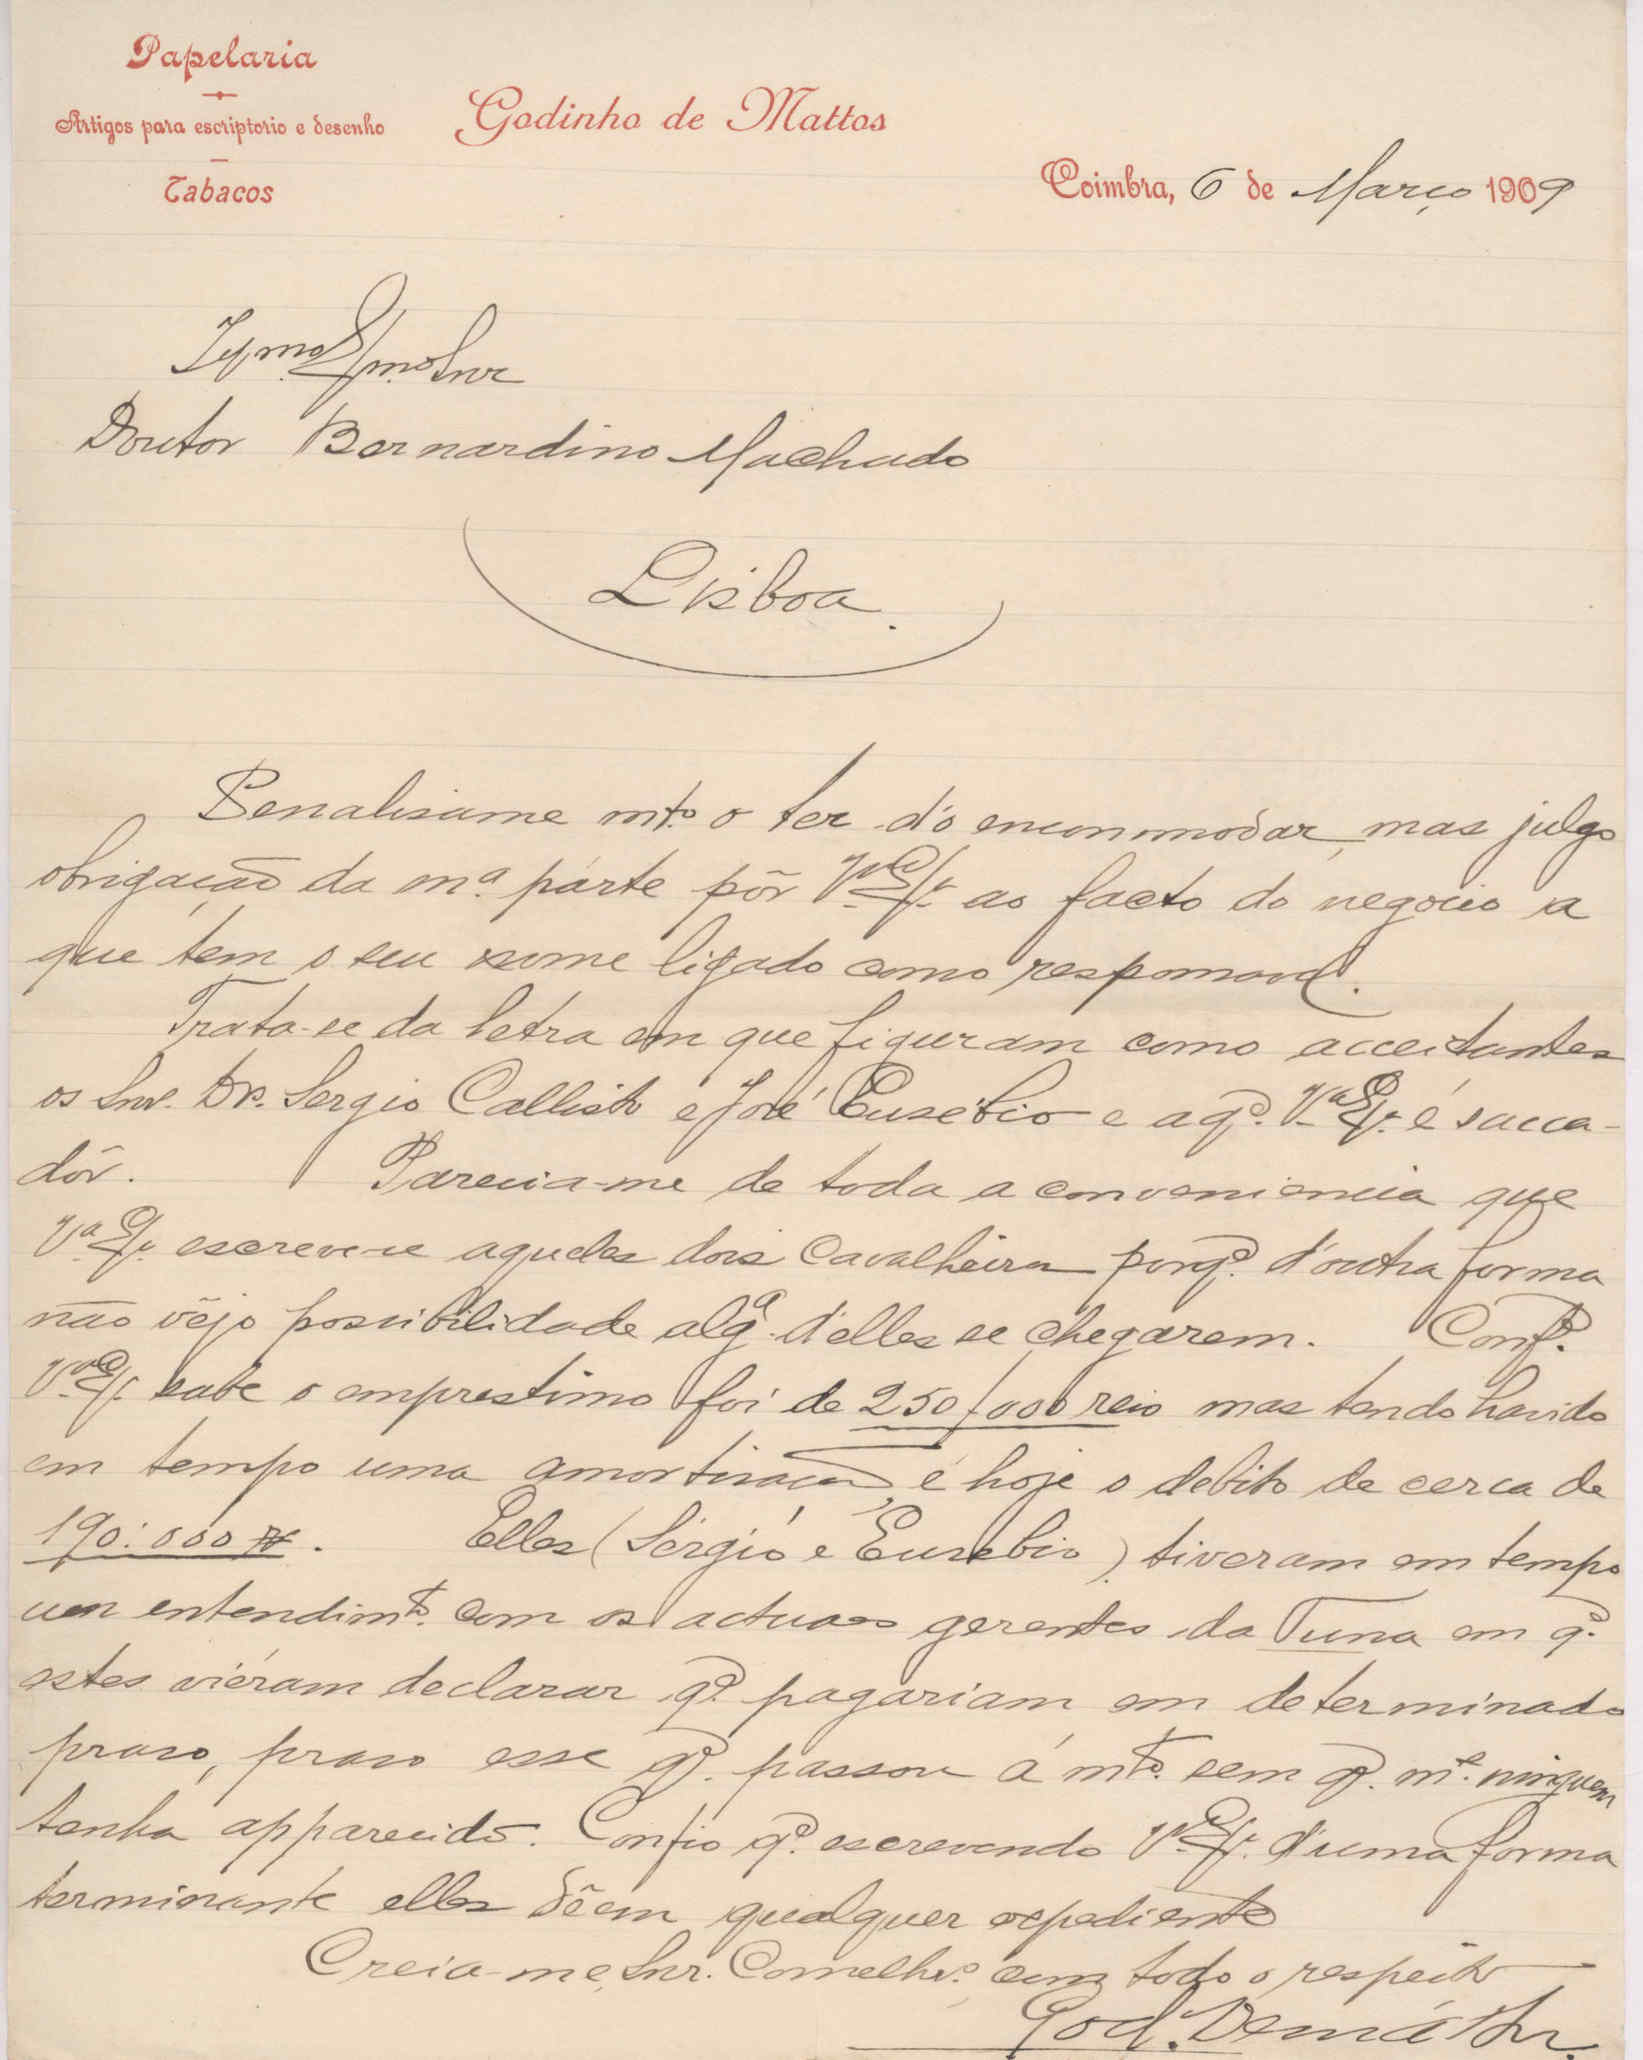 Papelaria
Artigos para escriptorio e desenho
Tabacos
Godinho de Mattos
Coimbra, 6 de Março 1909
Illmo. Exmo. Snr
Doutor Bernardino Machado
Lisboa.
Penalisame mto. o ter d'o encommodar, mas julgo
obrigação da ma. parte pôr Va. Exa. ao facto do negocio a
que tem o seu nome ligado como responsavel.
Trata-se da letra em que figuram como acceitantes
os Snrs. Dr. Sergio Callisto e José Eusébio e a qe. Va. Exa. é sacca-
dôr. Parecia-me de toda a conveniencia que
Va. Exa. escrevesse aquelles dois Cavalheiros porqe. d'outra forma
não vêjo possibilidade alga. d'elles se chegarem. Confe.
Va. Exa. sabe o emprestimo foi de 250/000 reis mas tendo havido
em tempo uma amortisação, é hoje o debito de cerca de
190:000 rs. Elles (Sérgio e Eusébio) tiveram em tempo
um entendimto. com os actuaes gerentes da Tuna em qe.
estes viéram declarar qe. pagariam em determinado
praso, praso esse qe. passou á mto. sem qe. me. ninguem
tenha apparecido. Confio qe. escrevendo Va. Exa. d'uma forma
terminante elles dêem qualquer expediente
Creia-me, Snr. Conselhro. com todo o respeito
God. Demattos.